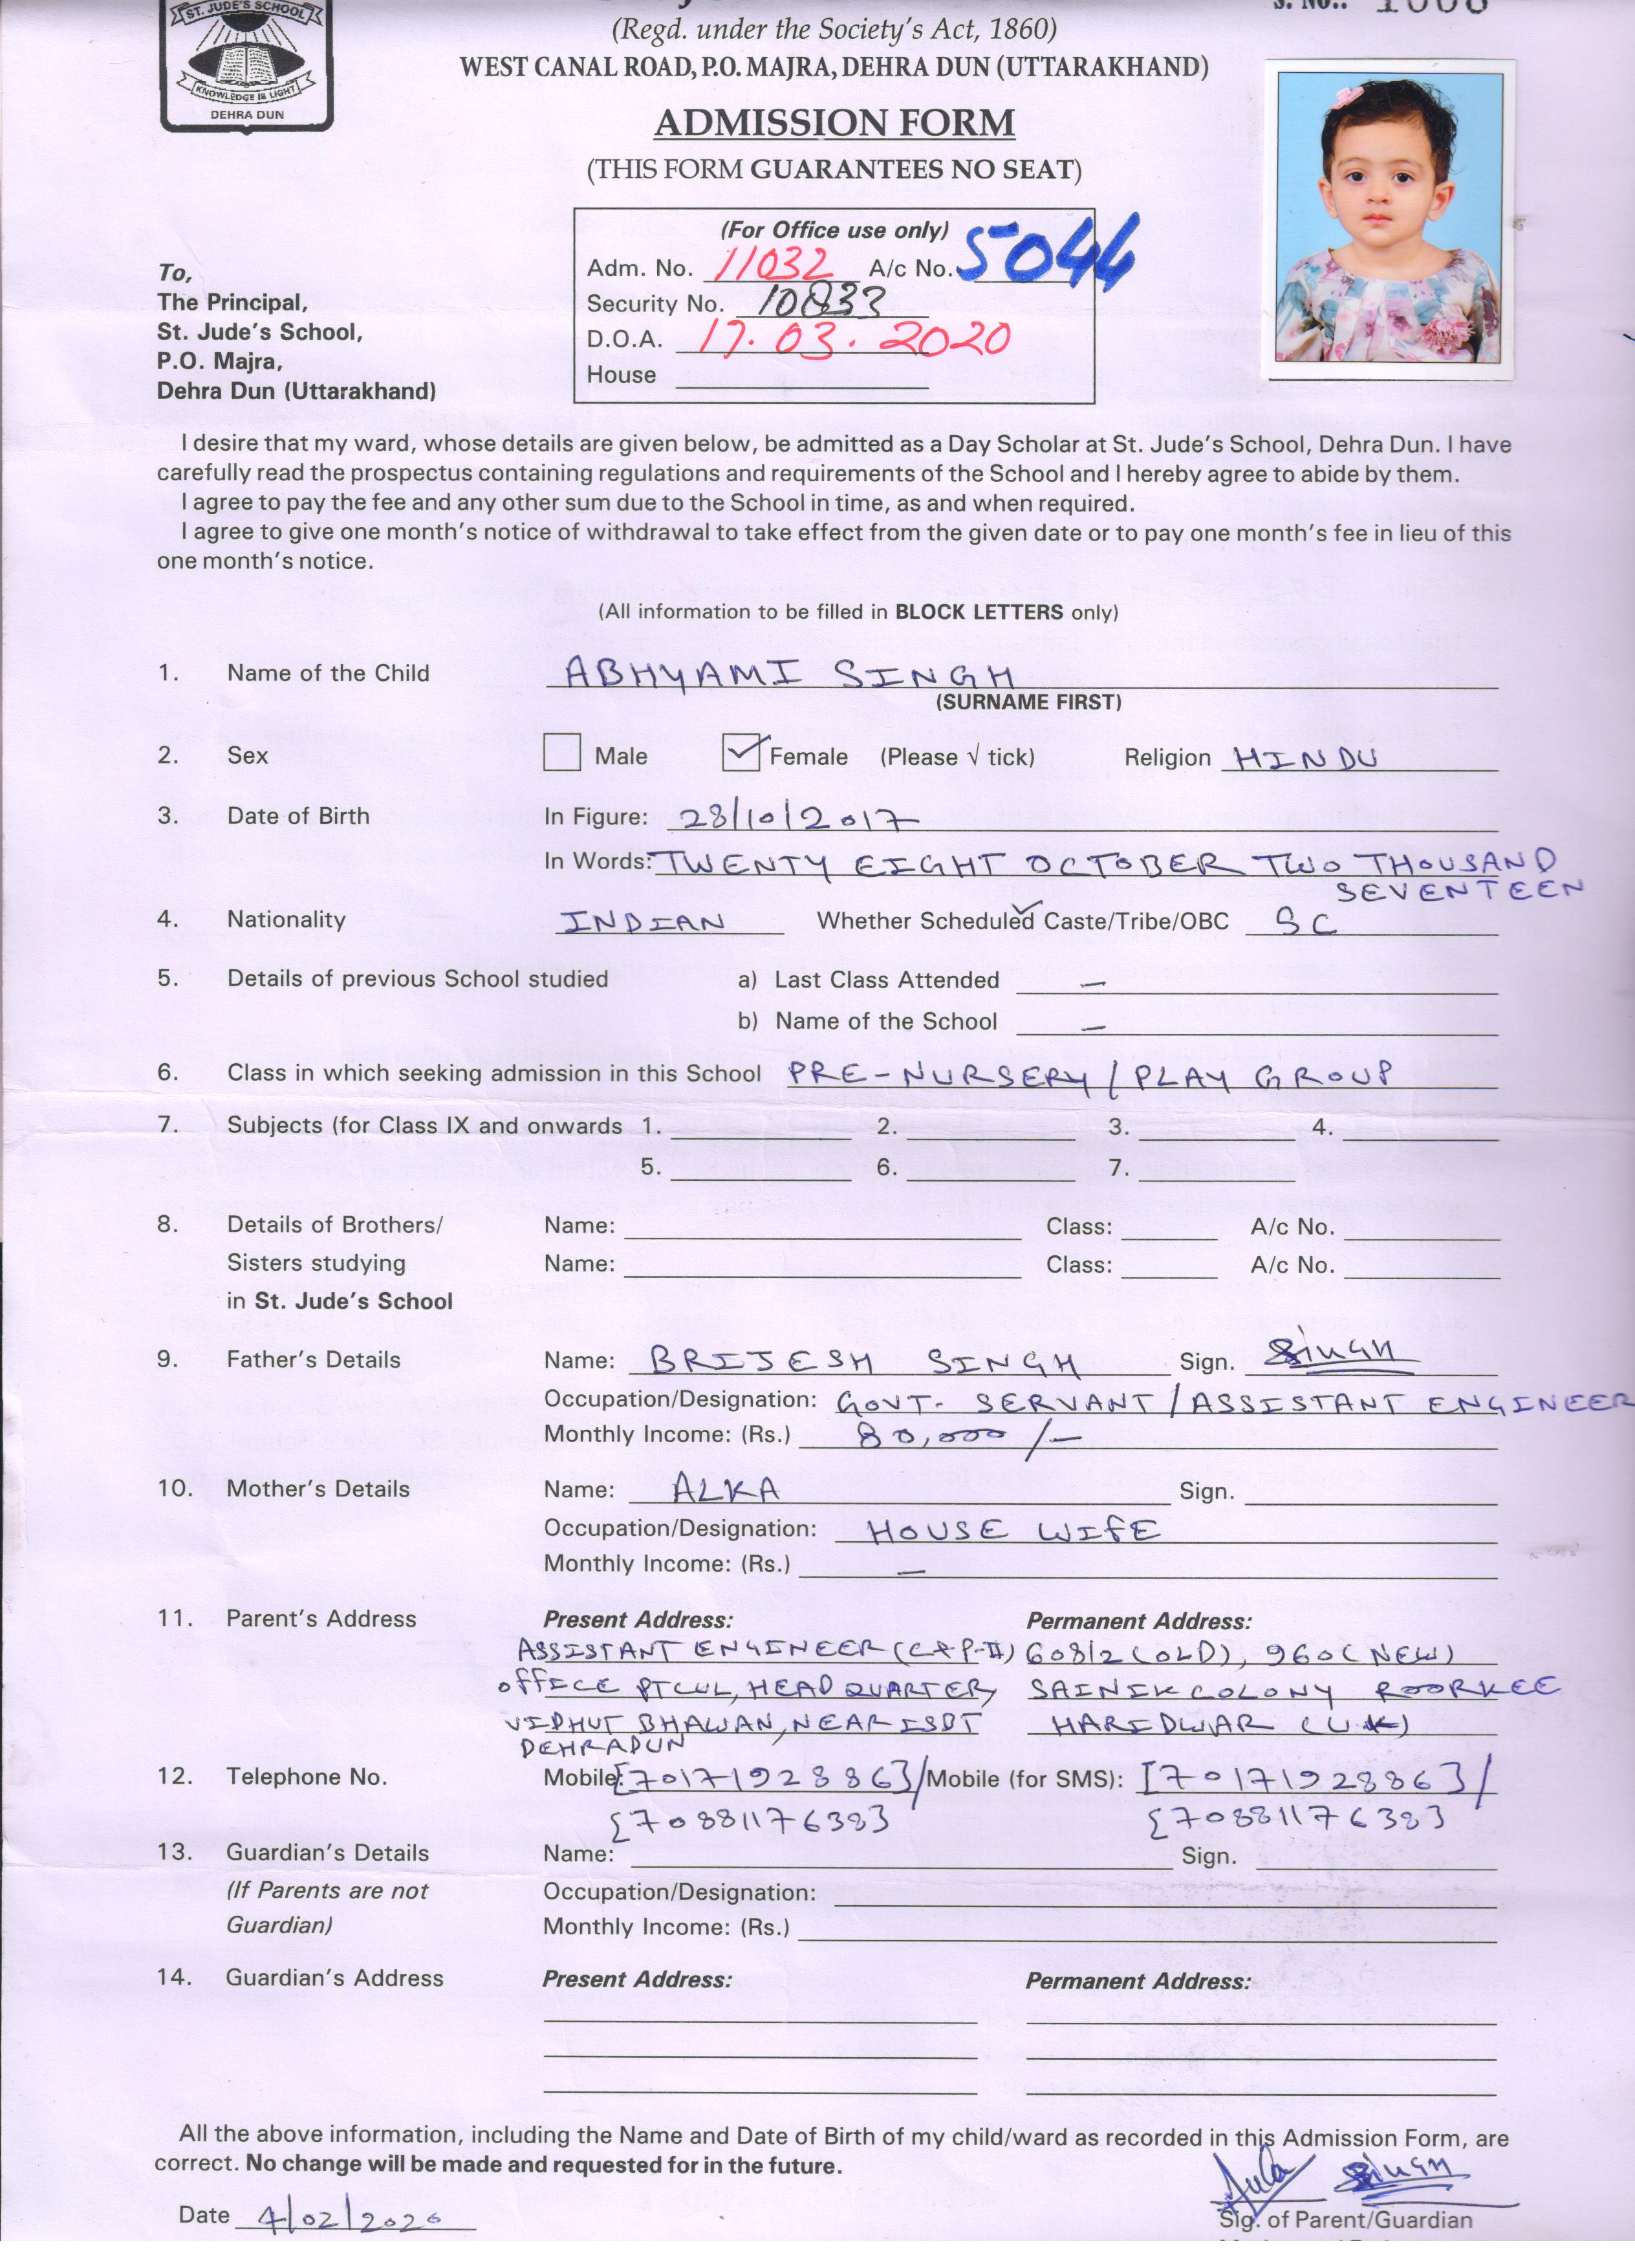 ST. JUDE'S SCHOOL
KNOWLEDGE IS LIGHT
DEHRA DUN
(Regd. under the Society's Act, 1860)
WEST CANAL ROAD, P.O. MAJRA, DEHRA DUN (UTTARAKHAND)
ADMISSION FORM
(THIS FORM GUARANTEES NO SEAT)
(For Office use only)
Adm. No. 11032 A/c No. 5044
Security No. 10833
D.O.A. 17.03.2020
House
To,
The Principal,
St. Jude's School,
P.O. Majra,
Dehra Dun (Uttarakhand)
I desire that my ward, whose details are given below, be admitted as a Day Scholar at St. Jude's School, Dehra Dun. I have
carefully read the prospectus containing regulations and requirements of the School and I hereby agree to abide by them.
I agree to pay the fee and any other sum due to the School in time, as and when required.
I agree to give one month's notice of withdrawal to take effect from the given date or to pay one month's fee in lieu of this
one month's notice.
(All information to be filled in BLOCK LETTERS only)
1. Name of the Child ABHYAMI SINGH
(SURNAME FIRST)
2. Sex Male Female (Please √ tick) Religion HINDU
3. Date of Birth In Figure: 28/10/2017
In Words: TWENTY EIGHT OCTOBER TWO THOUSAND
SEVENTEEN
4. Nationality INDIAN Whether Scheduled Caste/Tribe/OBC SC
5. Details of previous School studied a) Last Class Attended —
b) Name of the School —
6. Class in which seeking admission in this School PRE-NURSERY / PLAY GROUP
7. Subjects (for Class IX and onwards 1. 2. 3. 4.
5. 6. 7.
8. Details of Brothers/ Name: Class: A/c No.
Sisters studying Name: Class: A/c No.
in St. Jude's School
9. Father's Details Name: BRIJESH SINGH Sign. Singh
Occupation/Designation: GOVT. SERVANT / ASSISTANT ENGINEER
Monthly Income: (Rs.) 80,000/-
10. Mother's Details Name: ALKA Sign.
Occupation/Designation: HOUSE WIFE
Monthly Income: (Rs.) —
11. Parent's Address Present Address: Permanent Address:
ASSISTANT ENGINEER (C&P-II) 608/2 (OLD), 960 (NEW)
OFFICE PTCUL, HEAD QUARTER, SAINIK COLONY ROORKEE
VIDHUT BHAWAN, NEAR ISBT HARIDWAR (U.K)
DEHRADUN
12. Telephone No. Mobile: [7017192886]/ Mobile (for SMS): [7017192886]/
{7088117638} {7088117638}
13. Guardian's Details Name: Sign.
(If Parents are not Occupation/Designation:
Guardian) Monthly Income: (Rs.)
14. Guardian's Address Present Address: Permanent Address:
All the above information, including the Name and Date of Birth of my child/ward as recorded in this Admission Form, are
correct. No change will be made and requested for in the future.
Singh
Date 4/02/2020 Sig. of Parent/Guardian